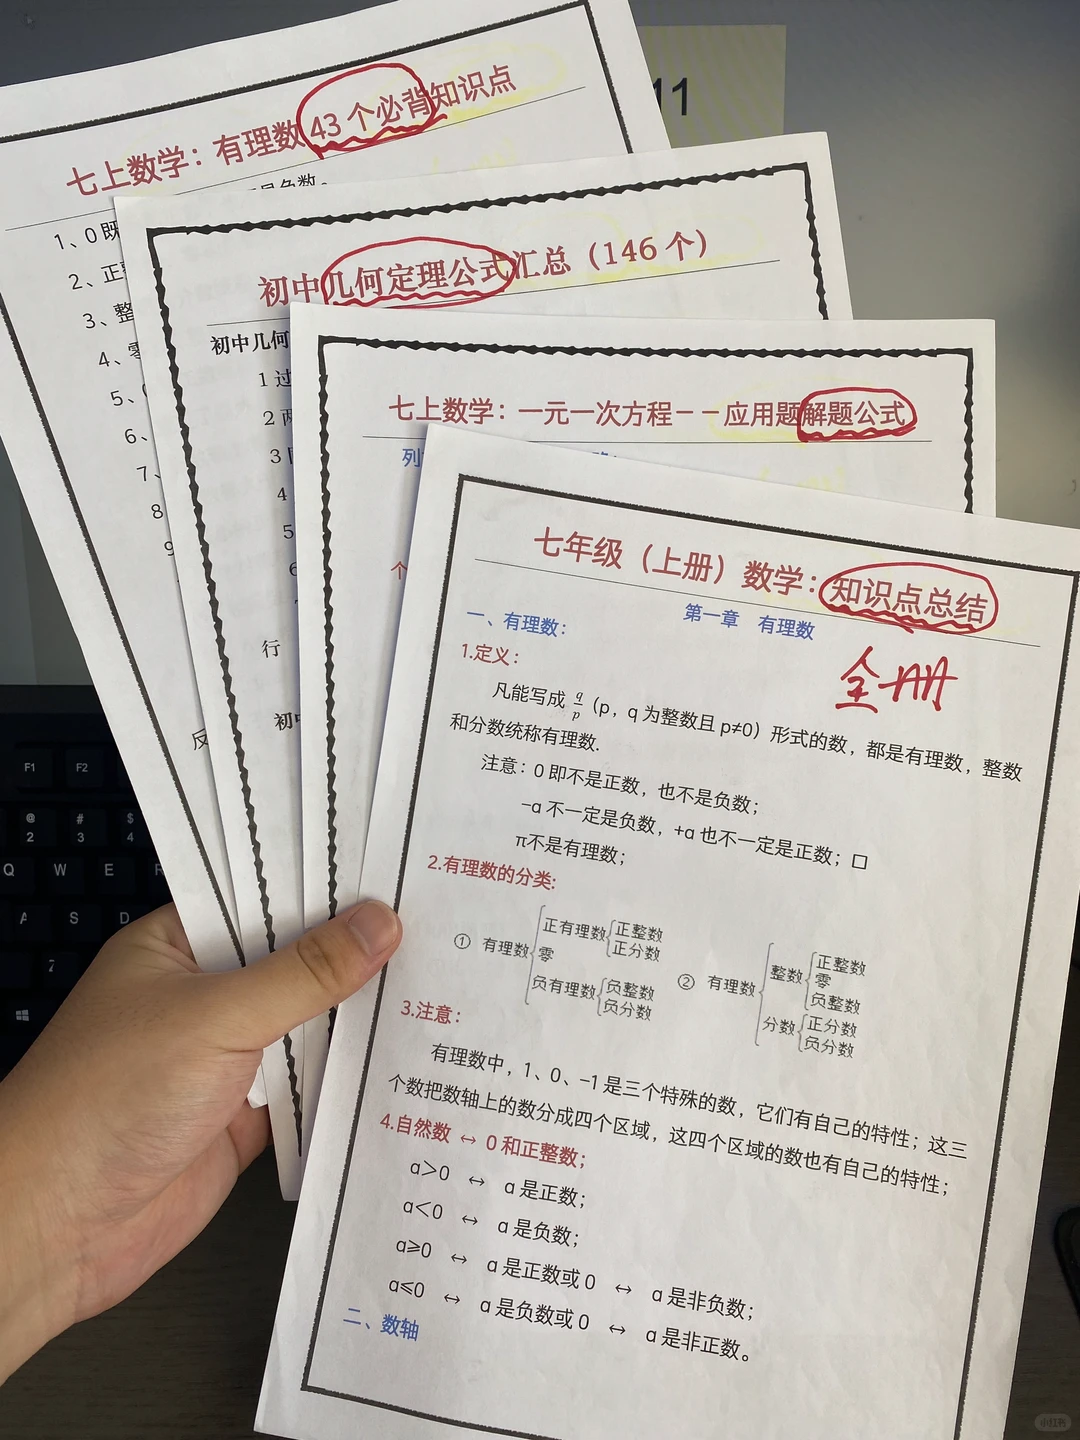 11
七上数学：有理数43个必背知识点
1、0既
2、正整
3、整
4、零
5、
6、
7、
8
9
反
初中几何定理公式汇总（146个）
初中几何
1 过
2 两
3
4
5
6
行
初中
七上数学：一元一次方程－－应用题解题公式
列
个
七年级（上册）数学：知识点总结
第一章 有理数
全册
一、有理数：
1.定义：
凡能写成 q/p（p，q为整数且p≠0）形式的数，都是有理数，整数
和分数统称有理数.
注意：0即不是正数，也不是负数；
-a不一定是负数，+a也不一定是正数；口
π不是有理数；
2.有理数的分类：
① 有理数 正有理数 正整数 正分数
零
负有理数 负整数 负分数
② 有理数 整数 正整数 零 负整数
分数 正分数 负分数
3.注意：
有理数中，1、0、-1是三个特殊的数，它们有自己的特性；这三
个数把数轴上的数分成四个区域，这四个区域的数也有自己的特性；
4.自然数 ↔ 0和正整数；
a＞0 ↔ a是正数；
a＜0 ↔ a是负数；
a≥0 ↔ a是正数或0 ↔ a是非负数；
a≤0 ↔ a是负数或0 ↔ a是非正数。
二、数轴
F1 F2
@ # $
2 3 4
Q W E R
A S D
7
小红书